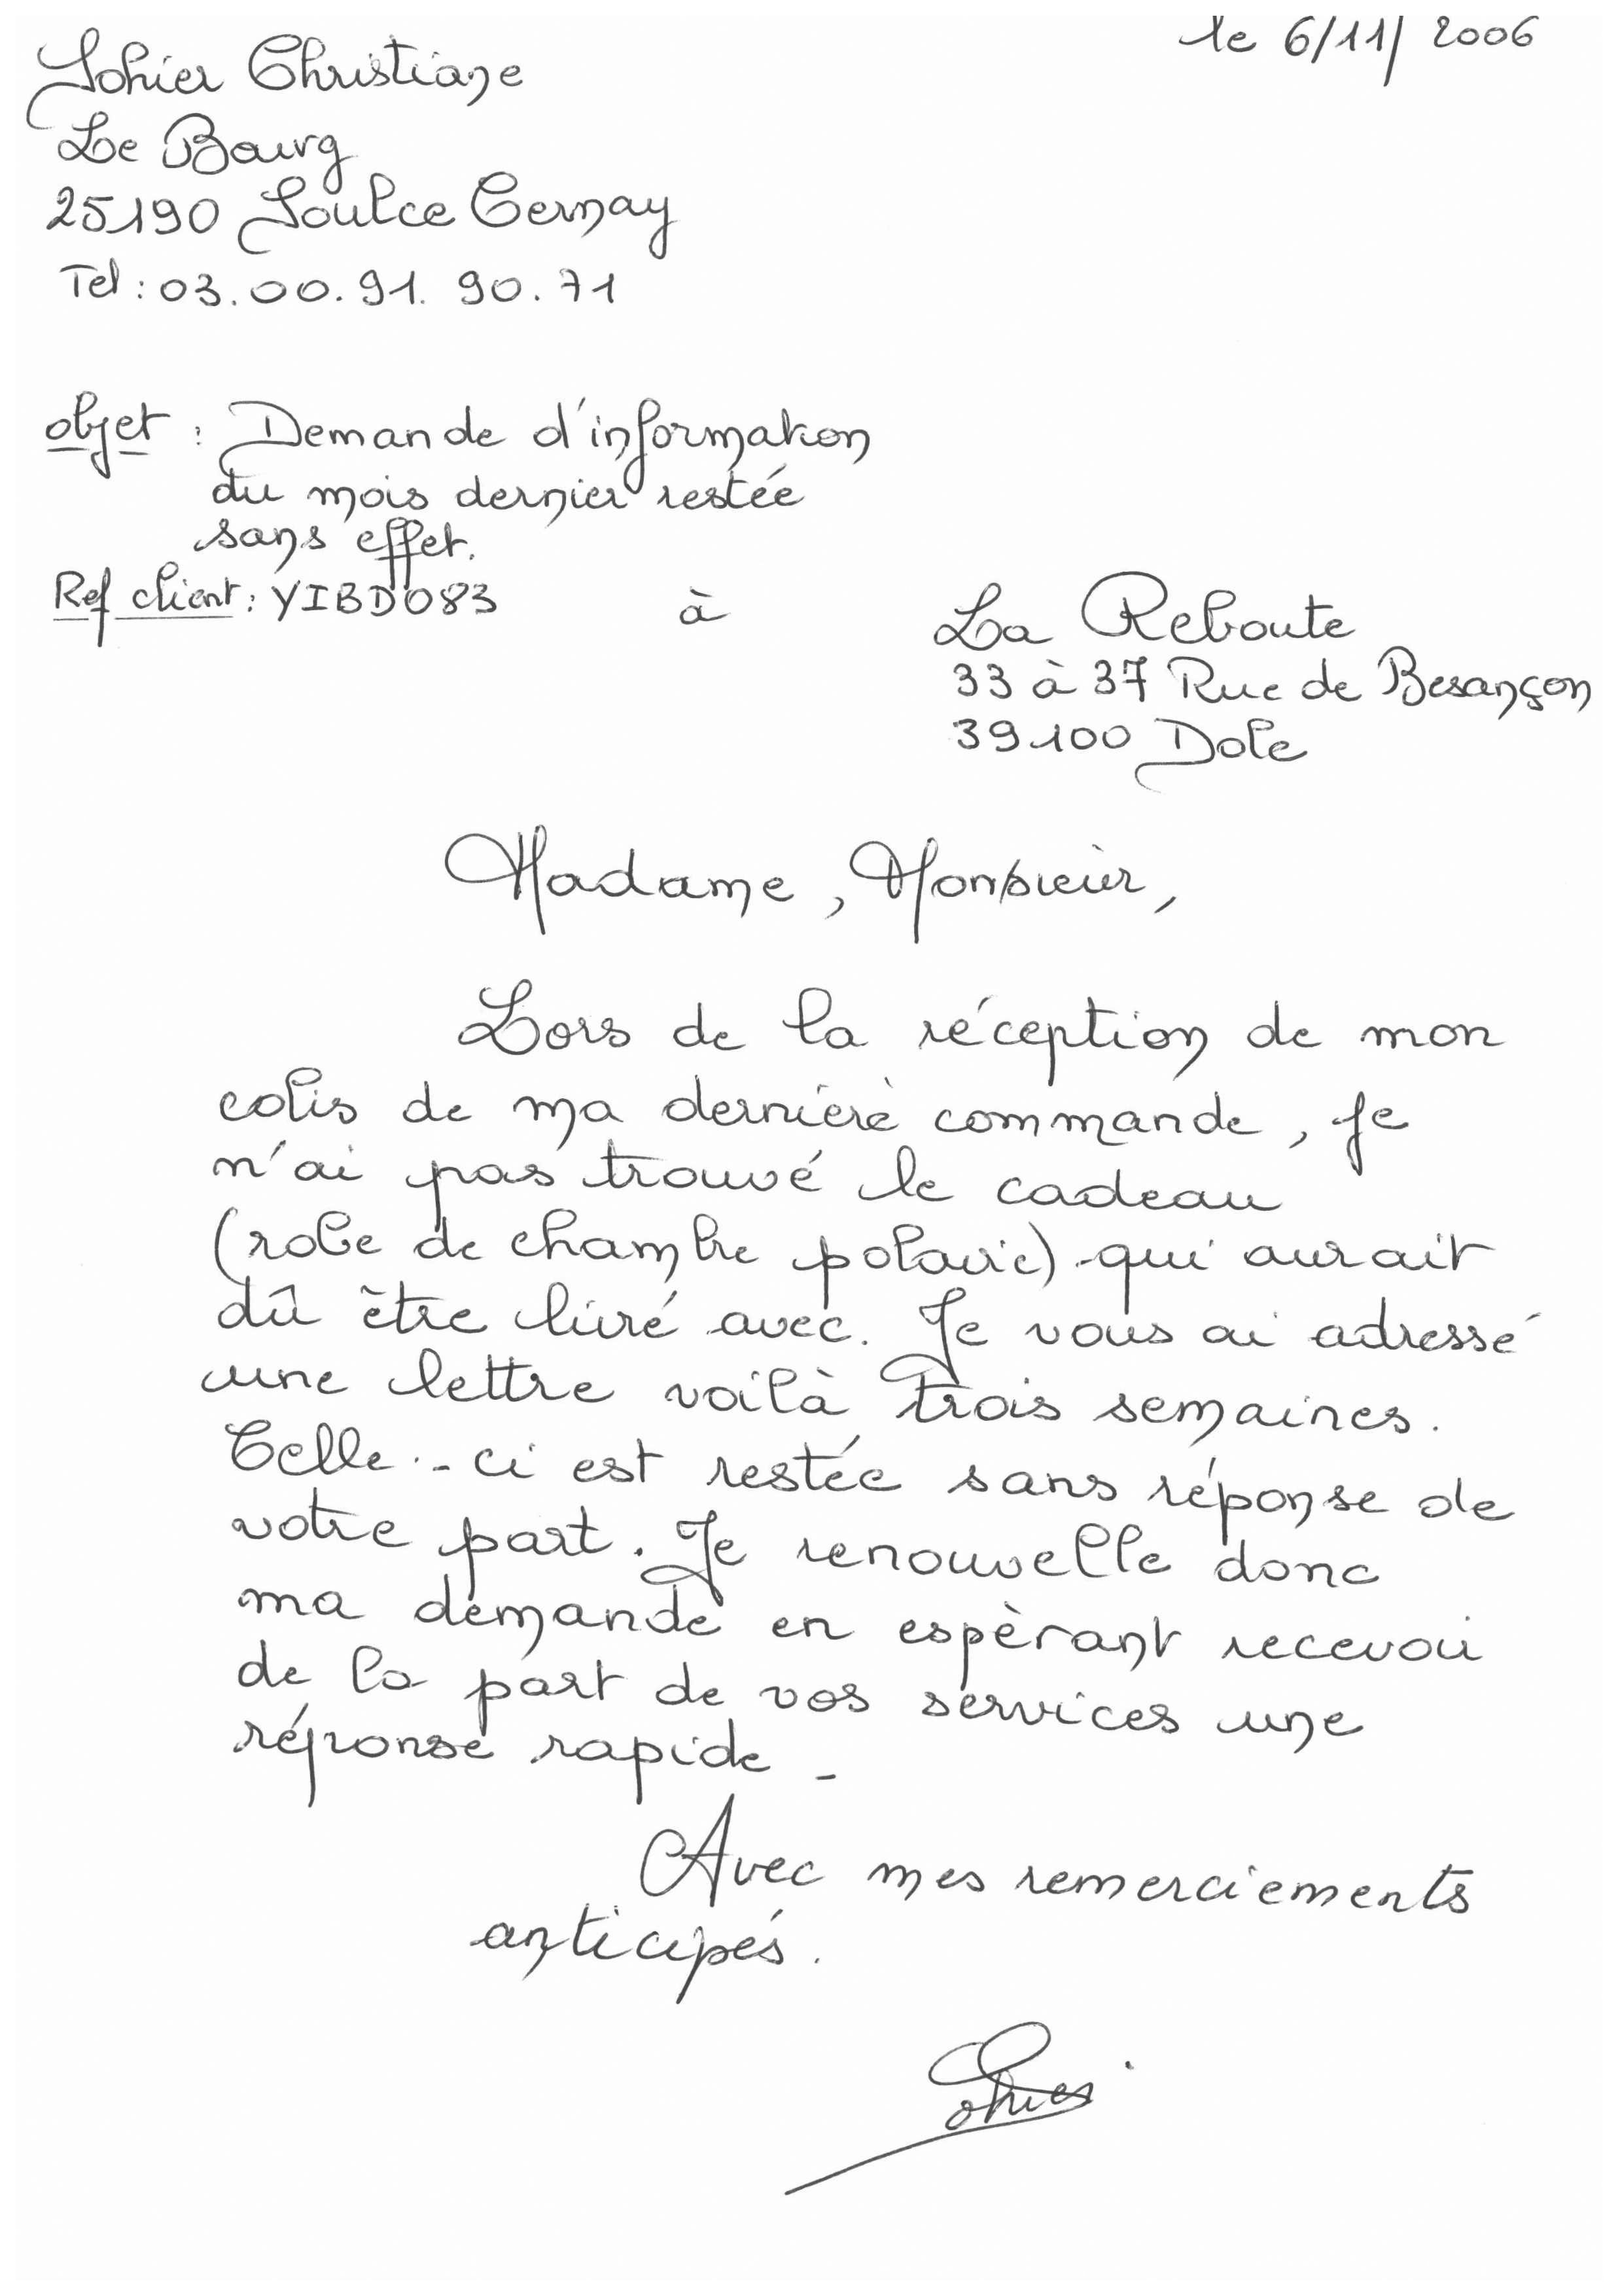 le 6/11/2006
Sohier Christiane
Le Bourg
25190 Soulce Cernay
Tel : 03.00.91.90.71
objet : Demande d'information
du mois dernier restée
sans effet.
Ref client : YIBD083
à
La Reboute
33 à 37 Rue de Besançon
39100 Dole
Madame, Monsieur,
Lors de la réception de mon
colis de ma dernière commande, je
n'ai pas trouvé le cadeau
(robe de chambre polaire) qui aurait
dû être livré avec. Je vous ai adressé
une lettre voilà trois semaines.
Celle-ci est restée sans réponse de
votre part. Je renouvelle donc
ma demande en espèrant recevoir
de la part de vos services une
réponse rapide -
Avec mes remerciements
anticipés.
Sohier